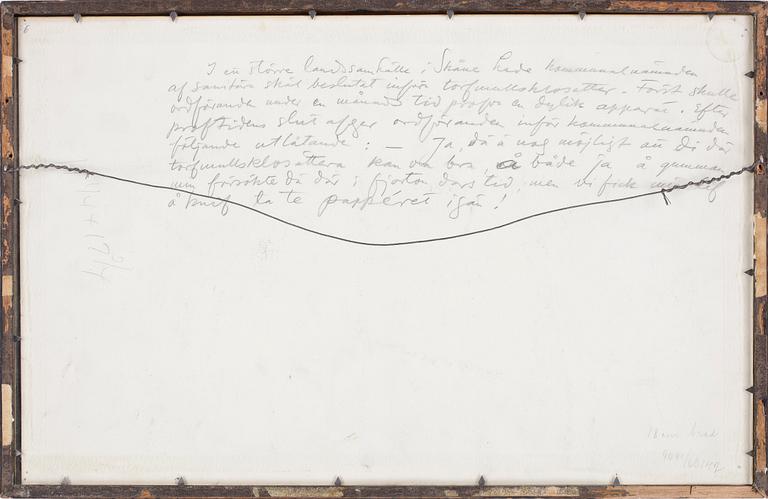 I en större landssamhälle i Skåne hade kommunalnämnden
af sanitära skäl beslutat införa torfmullsklosätter. Först skulle
ordföranden under en månads tid profva en dylik apparat. Efter
proftidens slut afger ordföranden inför kommunalnämnden
följande utlåtande: – Ja, då ä nog möjligt att di där
torfmullsklosättera kan va bra, å både ja å gumman
min försökte då där i fjorton dars tid, men vi fick
å knif ta te papperet igän!